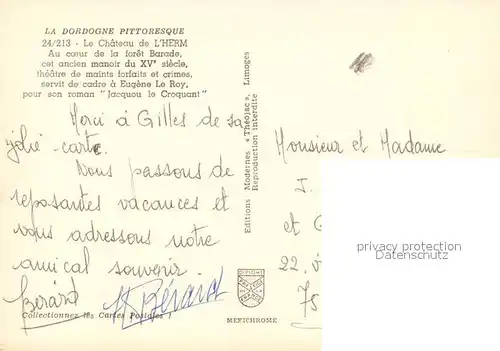 LA DORDOGNE PITTORESQUE
24/213 - Le Château de L'HERM
Au cœur de la forêt Barade,
cet ancien manoir du XVe siècle,
théâtre de maints forfaits et crimes,
servit de cadre à Eugène Le Roy,
pour son roman "Jacquou le Croquant"
Merci à Gilles de sa
jolie carte.
Nous passons de
reposantes vacances et
vous adressons notre
amical souvenir.
Bérard
Bérard
Collectionnez les Cartes Postales !
Editions Modernes « Théojac », Limoges
Reproduction interdite
MEXICHROME
Monsieur et Madame
J.
et G
22,
75
privacy protection
Datenschutz